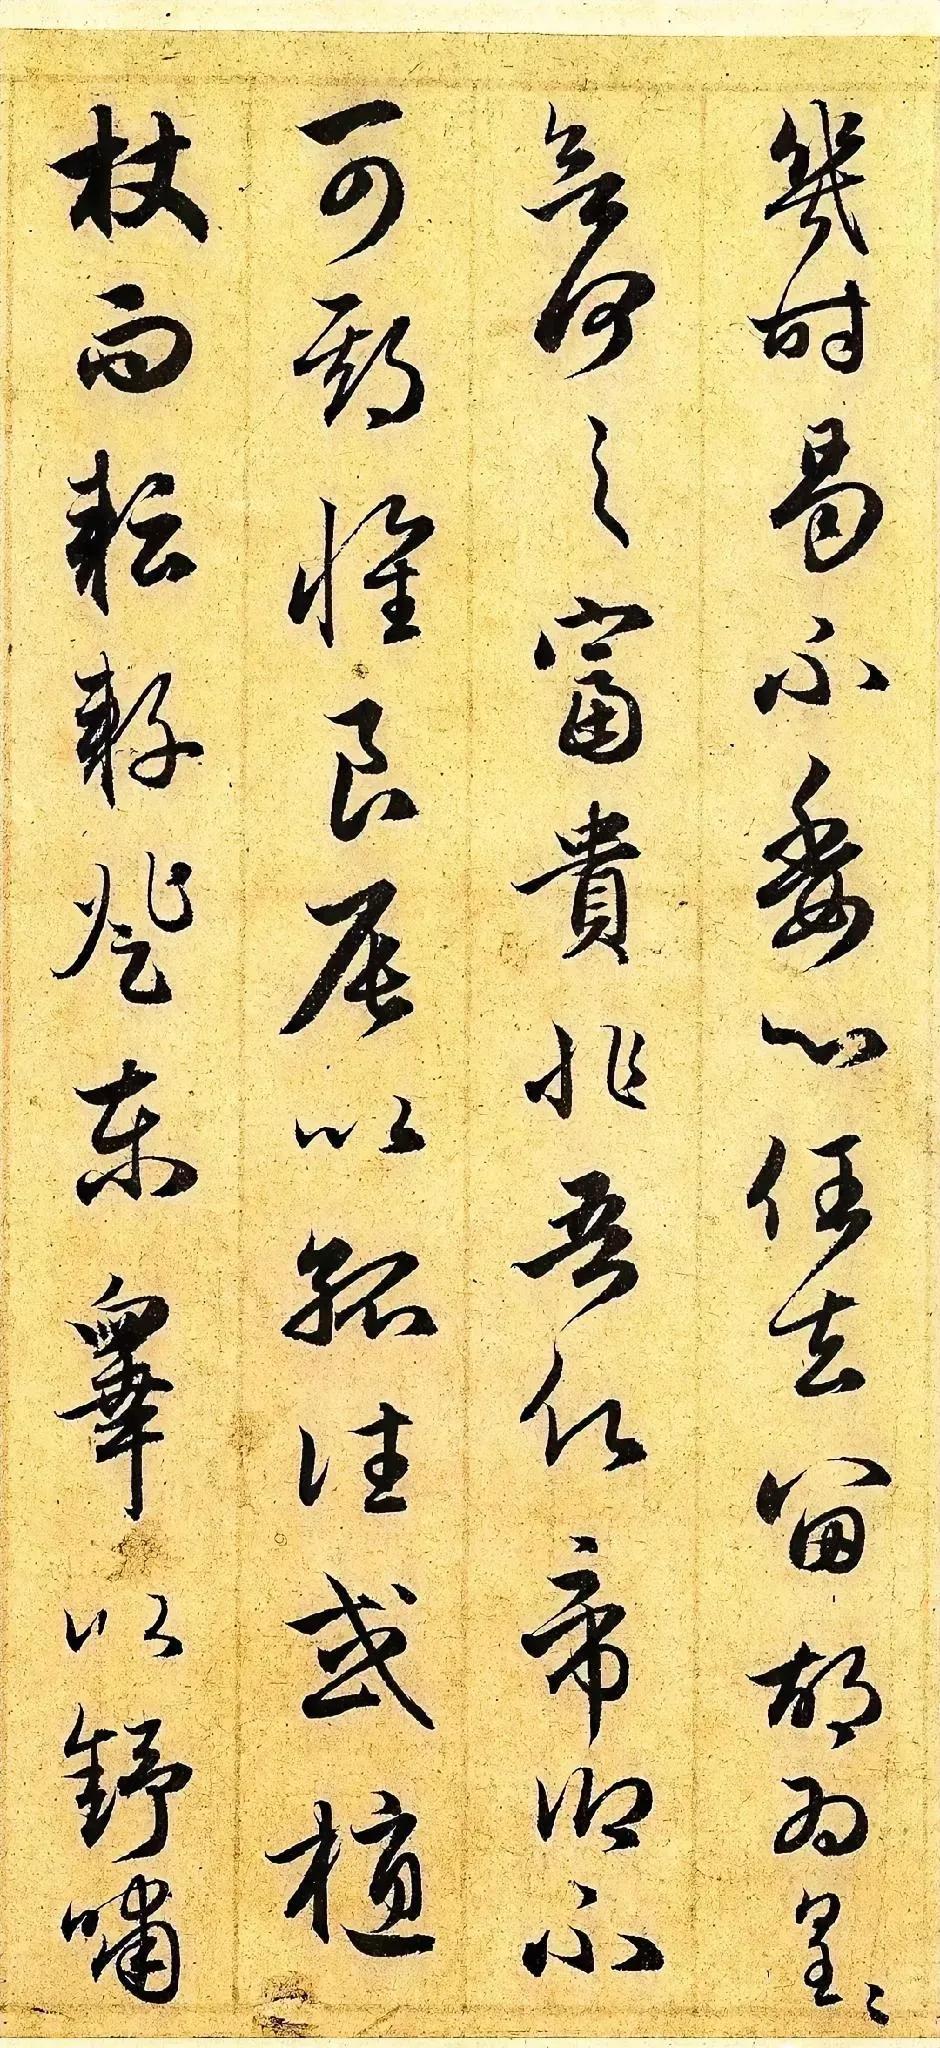 幾時曷不委心任去留胡為皇〻
欲何之富貴非吾願帝鄉不
可期懷良辰以孤往或植
杖而耘耔登東皋以舒嘯